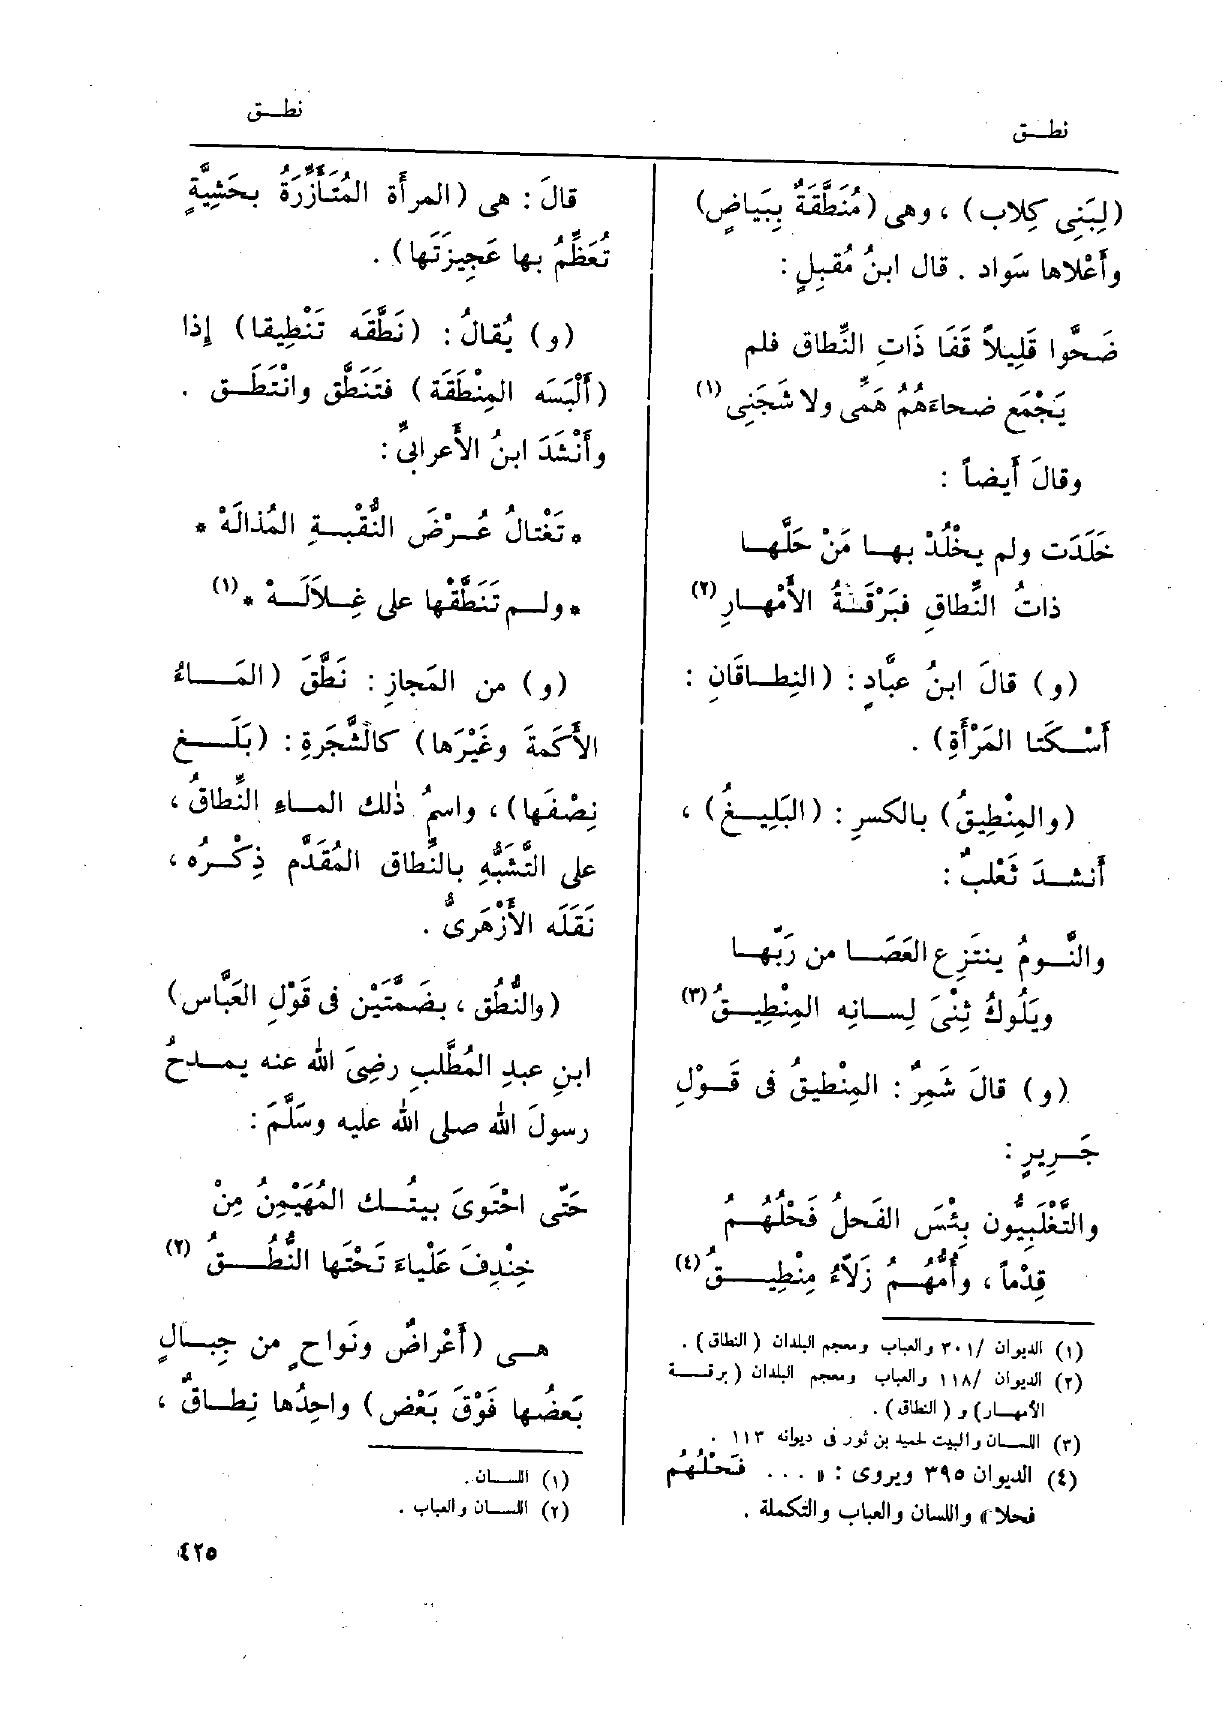 نطـــق
نطـــق
(لِبَنِى كِلاب) ، وهى (مُنَطَّقَةٌ بِبَياضٍ)
وأَعْلاها سَواد . قال ابنُ مُقبِلٍ :
ضَحَّوا قَلِيلاً قَفَا ذَاتِ النِّطاق فلم
يَجْمَع ضحاءَهُمُ هَمِّى ولا شَجَنِى (١)
وقالَ أَيضاً :
خَلَدَت ولم يخْلُدْ بهـا مَنْ حَلَّهـا
ذاتُ النِّطاقِ فبَرْقَـةُ الأَمْهـارِ (٢)
(و) قالَ ابنُ عبَّادٍ : (النِطـاقَانِ :
أَسْـكَتا المَرْأَةِ) .
(والمِنْطِيقُ) بالكسرِ : (البَلِيـغُ) ،
أَنشـدَ ثَعْلبٌ :
والنَّـومُ ينتَزِع العَصَـا من رَبِّهـا
ويَلُوكُ ثِنْىَ لِسـانِه المِنْطِيـقُ (٣)
(و) قالَ شَمِرٌ : المِنْطيقُ فى قَـوْلِ
جَـرِيرٍ :
والتَّغْلَبِيُّون بِئْسَ الفَحلُ فَحْلُهُـمُ
قِدْماً ، وأُمُّهُـمُ زَلاَّءُ مِنْطِيـــقُ (٤)
(١) الديوان /٣٠١ والعباب ومعجم البلدان (النطاق) .
(٢) الديوان /١١٨ والعباب ومعجم البلدان (برقـــة
الأمهـار) و (النطاق) .
(٣) اللسـان والبيت لحميد بن ثور فى ديوانه ١١٣ .
(٤) الديوان ٣٩٥ ويروى : « . . . فَحْلُهُم
فحلا» واللسان والعباب والتكملة .
قالَ : هى (المرأة المُتَأَزِّرَةُ بحَشِيَّةٍ
تُعَظِّمُ بها عَجِيزَتَها) .
(و) يُقالُ : (نَطَّقَه تَنْطِيقا) إِذا
(أَلْبَسَه المِنْطَقَة) فتَنَطَّق وانْتَطَـق .
وأَنْشَدَ ابنُ الأَعرابىِّ :
* تَغْتالُ عُـرْضَ النُّقْبـةِ المُذالَهْ *
* ولـم تَنَطَّقْها على غِـلاَلَـهْ * (١)
(و) من المَجازِ : نَطَّقَ (المَـــاءُ
الأَكَمةَ وغَيْرَها) كالشَّجَرةِ : (بَلَـــغ
نِصْفَها) ، واسمُ ذٰلك المـاءِ النِّطاقُ ،
على التَّشَبُّهِ بالنِّطاق المُقَدَّم ذِكْـرُه ،
نَقَلَه الأَزْهَرىُّ .
(والنُّطُق ، بضَمَّتَيْن فى قَوْلِ العَبَّاس)
ابنِ عبدِ المُطَّلبِ رضِىَ الله عنه يمـدحُ
رسولَ الله صلى الله عليه وسَلَّمَ :
حَتّى احْتَوىَ بيتُـك المُهَيْمِنُ مِنْ
خِندِفَ عَلْياءَ تَحْتَها النُّطُـــقُ (٢)
هـى (أَعْراضٌ ونَواحٍ من جِبـالٍ
بَعضُها فَوْقَ بَعْض) واحِدُها نِطاقٌ ،
(١) اللسـان .
(٢) اللسـان والعباب .
٤٢٥